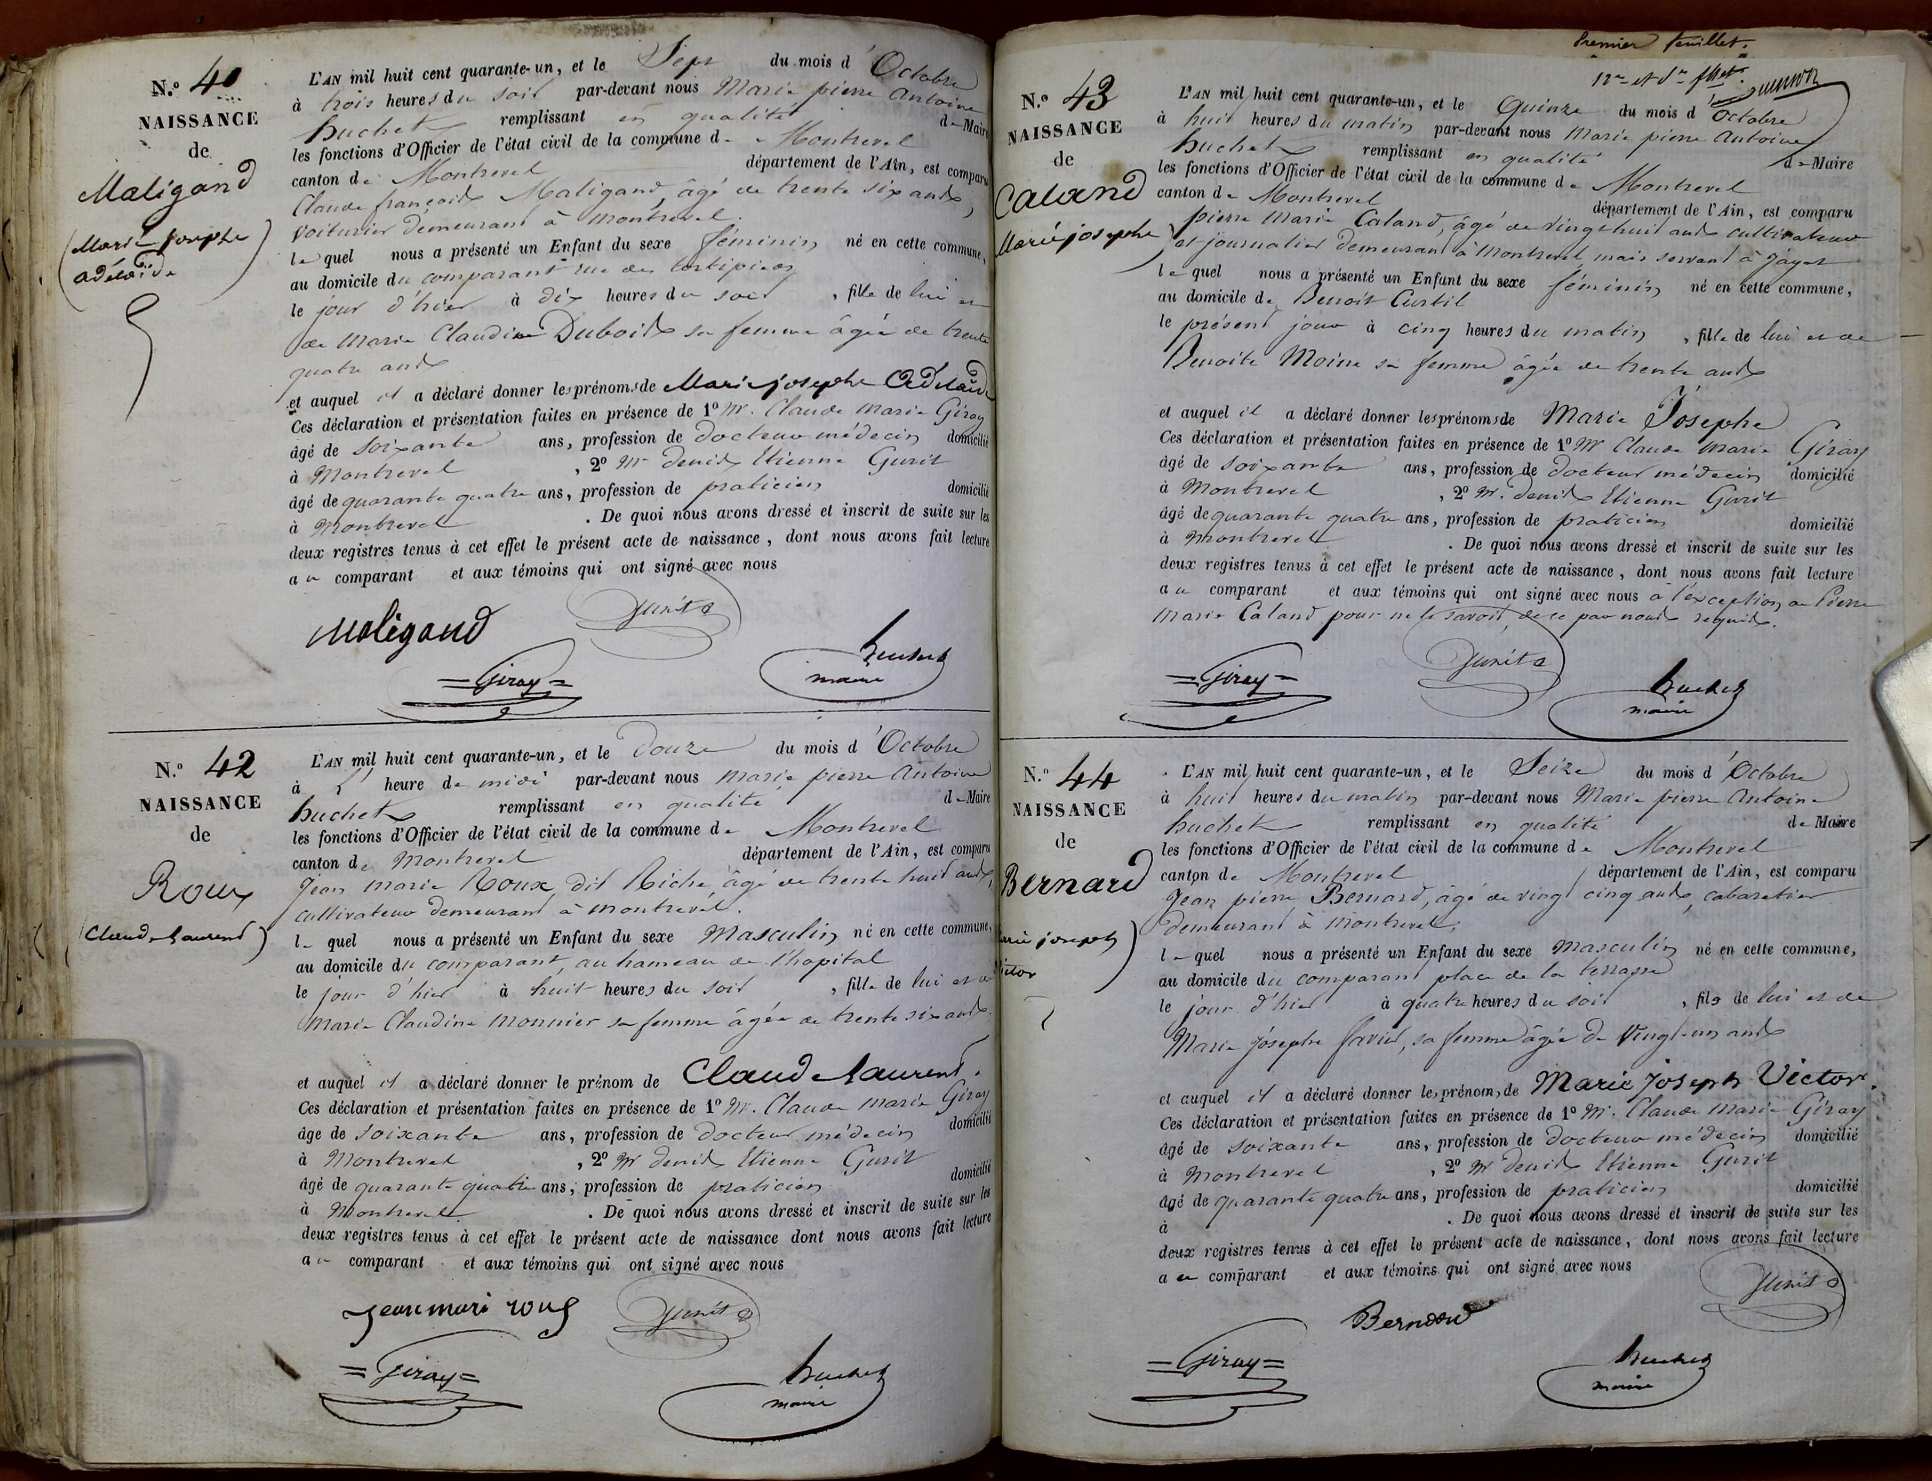 N.º 40
NAISSANCE
de
Maligand
(Marie josephe
adélaïde)
L'AN mil huit cent quarante-un, et le Sept du mois d'Octobre
à trois heures du soir par-devant nous Marie pierre Antoine
huchet remplissant en qualité de Maire
les fonctions d'Officier de l'état civil de la commune de Montrevel
canton de Montrevel département de l'Ain, est comparu
Claude françois Maligand, âgé de trente six ans,
voiturier demeurant à Montrevel.
lequel nous a présenté un Enfant du sexe féminin né en cette commune,
au domicile du comparant rue des
le jour d'hier à dix heures du soir, fille de lui et
de Marie Claudine Dubois sa femme âgée de trente
quatre ans
et auquel il a déclaré donner les prénoms de Marie josephe Adélaïde
Ces déclaration et présentation faites en présence de 1º Mr. Claude Marie Giray
âgé de soixante ans, profession de docteur médecin domicilié
à Montrevel, 2º Mr denis Etienne Gurit
âgé de quarante quatre ans, profession de praticien domicilié
à Montrevel. De quoi nous avons dressé et inscrit de suite sur les
deux registres tenus à cet effet le présent acte de naissance, dont nous avons fait lecture
au comparant et aux témoins qui ont signé avec nous
Maligand Gurit
=Giray= huchet
maire
N.º 42
NAISSANCE
de
Roux
(Claude Laurent)
L'AN mil huit cent quarante-un, et le douze du mois d'Octobre
à l'heure de midi par-devant nous Marie pierre Antoine
huchet remplissant en qualité de Maire
les fonctions d'Officier de l'état civil de la commune de Montrevel
canton de Montrevel département de l'Ain, est comparu
Jean Marie Roux, dit Riche, âgé de trente huit ans,
cultivateur demeurant à Montrevel.
lequel nous a présenté un Enfant du sexe Masculin né en cette commune,
au domicile du comparant, au hameau de l'hopital
le jour d'hier à huit heures du soir, fille de lui et de
Marie Claudine Monnier sa femme âgée de trente six ans
et auquel il a déclaré donner le prénom de Claude Laurent.
Ces déclaration et présentation faites en présence de 1º Mr. Claude Marie Giray
âge de soixante ans, profession de docteur médecin domicilié
à Montrevel, 2º Mr denis Etienne Gurit
âgé de quarante quatre ans, profession de praticien domicilié
à Montrevel. De quoi nous avons dressé et inscrit de suite sur les
deux registres tenus à cet effet le présent acte de naissance dont nous avons fait lecture
au comparant et aux témoins qui ont signé avec nous
jean mari roux Gurit
=Giray= huchet
maire
Premier feuillet.
N.º 43
NAISSANCE
de
Caland
Marie josephe
L'AN mil huit cent quarante-un, et le Quinze du mois d'Octobre
à huit heures du matin par-devant nous Marie pierre Antoine
huchet remplissant en qualité de Maire
les fonctions d'Officier de l'état civil de la commune de Montrevel
canton de Montrevel département de l'Ain, est comparu
pierre Marie Caland, âgé de vingt huit ans cultivateur
et journalier demeurant à Montrevel mais servant à Jayat
lequel nous a présenté un Enfant du sexe féminin né en cette commune,
au domicile de Benoit Curtil
le présent jour à cinq heures du matin, fille de lui et de
Benoite Moine sa femme âgée de trente ans
et auquel il a déclaré donner les prénoms de Marie Josephe
Ces déclaration et présentation faites en présence de 1º Mr Claude Marie Giray
âgé de soixante ans, profession de docteur médecin domicilié
à Montrevel, 2º Mr. denis Etienne Gurit
âgé de quarante quatre ans, profession de praticien domicilié
à Montrevel. De quoi nous avons dressé et inscrit de suite sur les
deux registres tenus à cet effet le présent acte de naissance, dont nous avons fait lecture
au comparant et aux témoins qui ont signé avec nous a l'exception de Pierre
Marie Caland pour ne le savoir, de ce par nous requis.
Gurit
=Giray= huchet
maire
N.º 44
NAISSANCE
de
Bernard
joseph
L'AN mil huit cent quarante-un, et le Seize du mois d'Octobre
à huit heures du matin par-devant nous Marie pierre Antoine
huchet remplissant en qualité de Maire
les fonctions d'Officier de l'état civil de la commune de Montrevel
canton de Montrevel département de l'Ain, est comparu
Jean pierre Bernard, âgé de vingt cinq ans, cabaretier
demeurant à Montrevel,
lequel nous a présenté un Enfant du sexe masculin né en cette commune,
au domicile du comparant place de la terrasse
le jour d'hier à quatre heures du soir, fils de lui et de
Marie Josephe favier, sa femme âgée de Vingt-un ans
et auquel il a déclaré donner les prénoms de Marie joseph Victor.
Ces déclaration et présentation faites en présence de 1º Mr. Claude Marie Giray
âgé de soixante ans, profession de docteur médecin domicilié
à Montrevel, 2º Mr denis Etienne Gurit
âgé de quarante quatre ans, profession de praticien domicilié
à . De quoi nous avons dressé et inscrit de suite sur les
deux registres tenus à cet effet le présent acte de naissance, dont nous avons fait lecture
au comparant et aux témoins qui ont signé avec nous
Gurit
Bernard
=Giray= huchet
maire